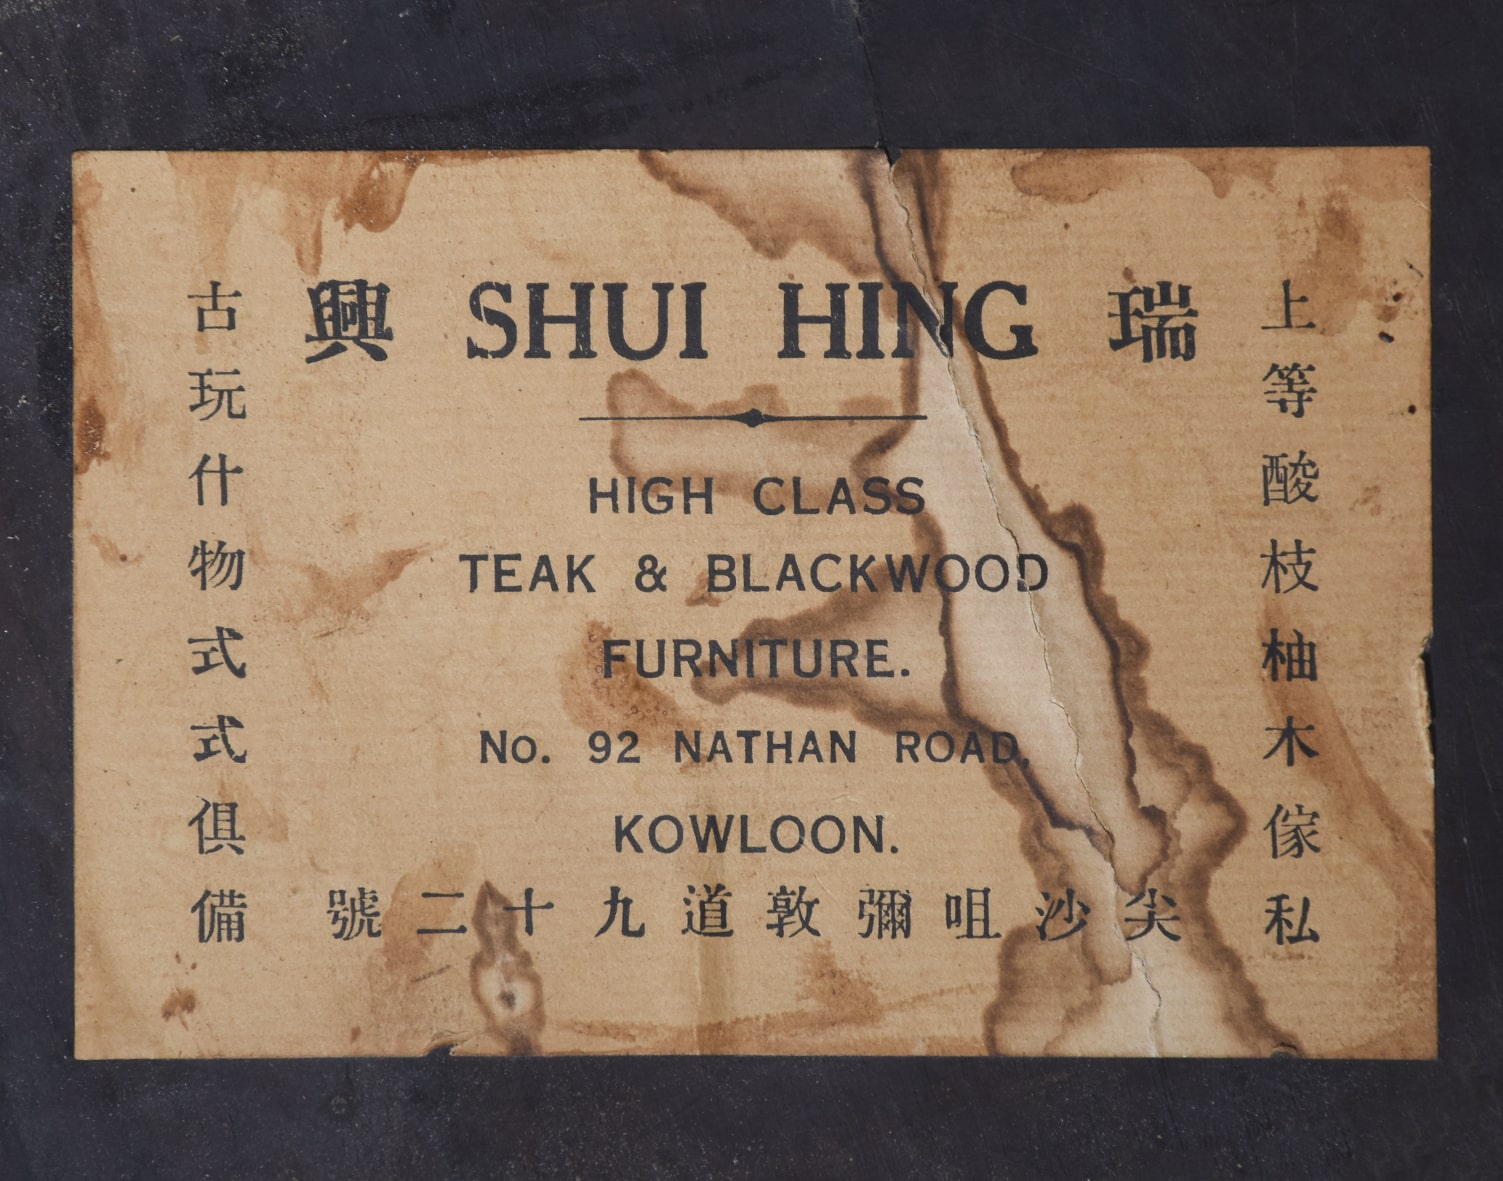 瑞 SHUI HING 興
HIGH CLASS
TEAK & BLACKWOOD
FURNITURE.
No. 92 NATHAN ROAD,
KOWLOON.
尖沙咀彌敦道九十二號
上等酸枝柚木傢私
古玩什物式式俱備